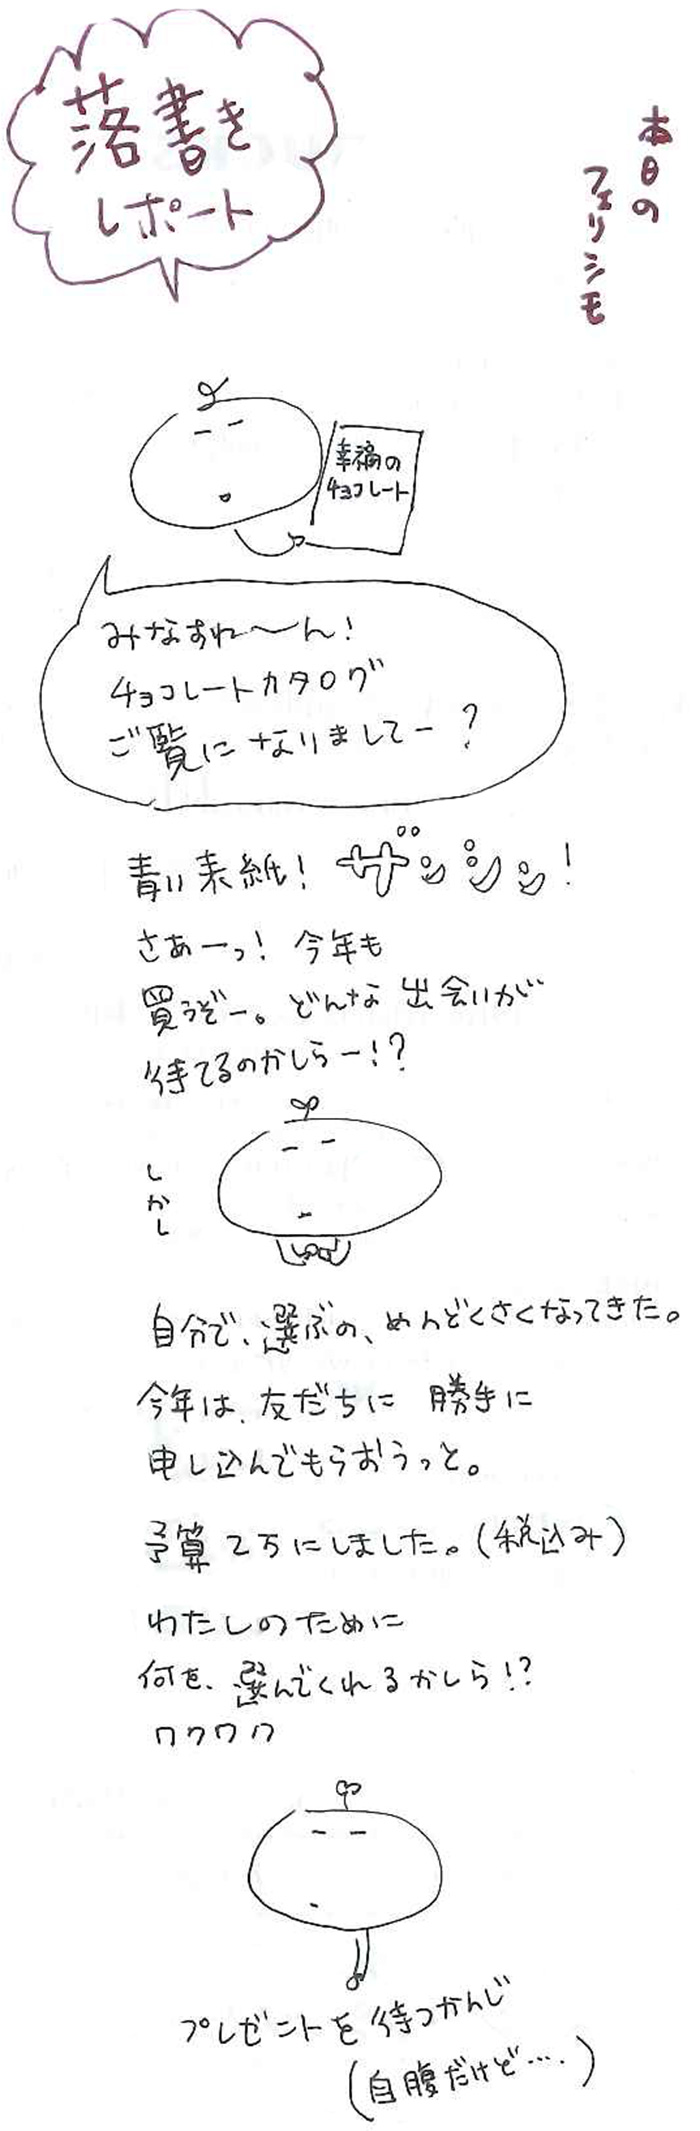 落書き
レポート
本日の
フェリシモ
幸福の
チョコレート
みなすわ〜ん!
チョコレートカタログ
ご覧になりましてー?
青い表紙! ザンシン!
さあーっ! 今年も
買うぞー。どんな出会いが
待てるのかしらー!?
しかし
自分で、選ぶの、めんどくさくなってきた。
今年は、友だちに 勝手に
申し込んでもらおうっと。
予算2万にしました。(税込み)
わたしのために
何を、選んでくれるかしら!?
ワクワク
プレゼントを待つかんじ
(自腹だけど….)